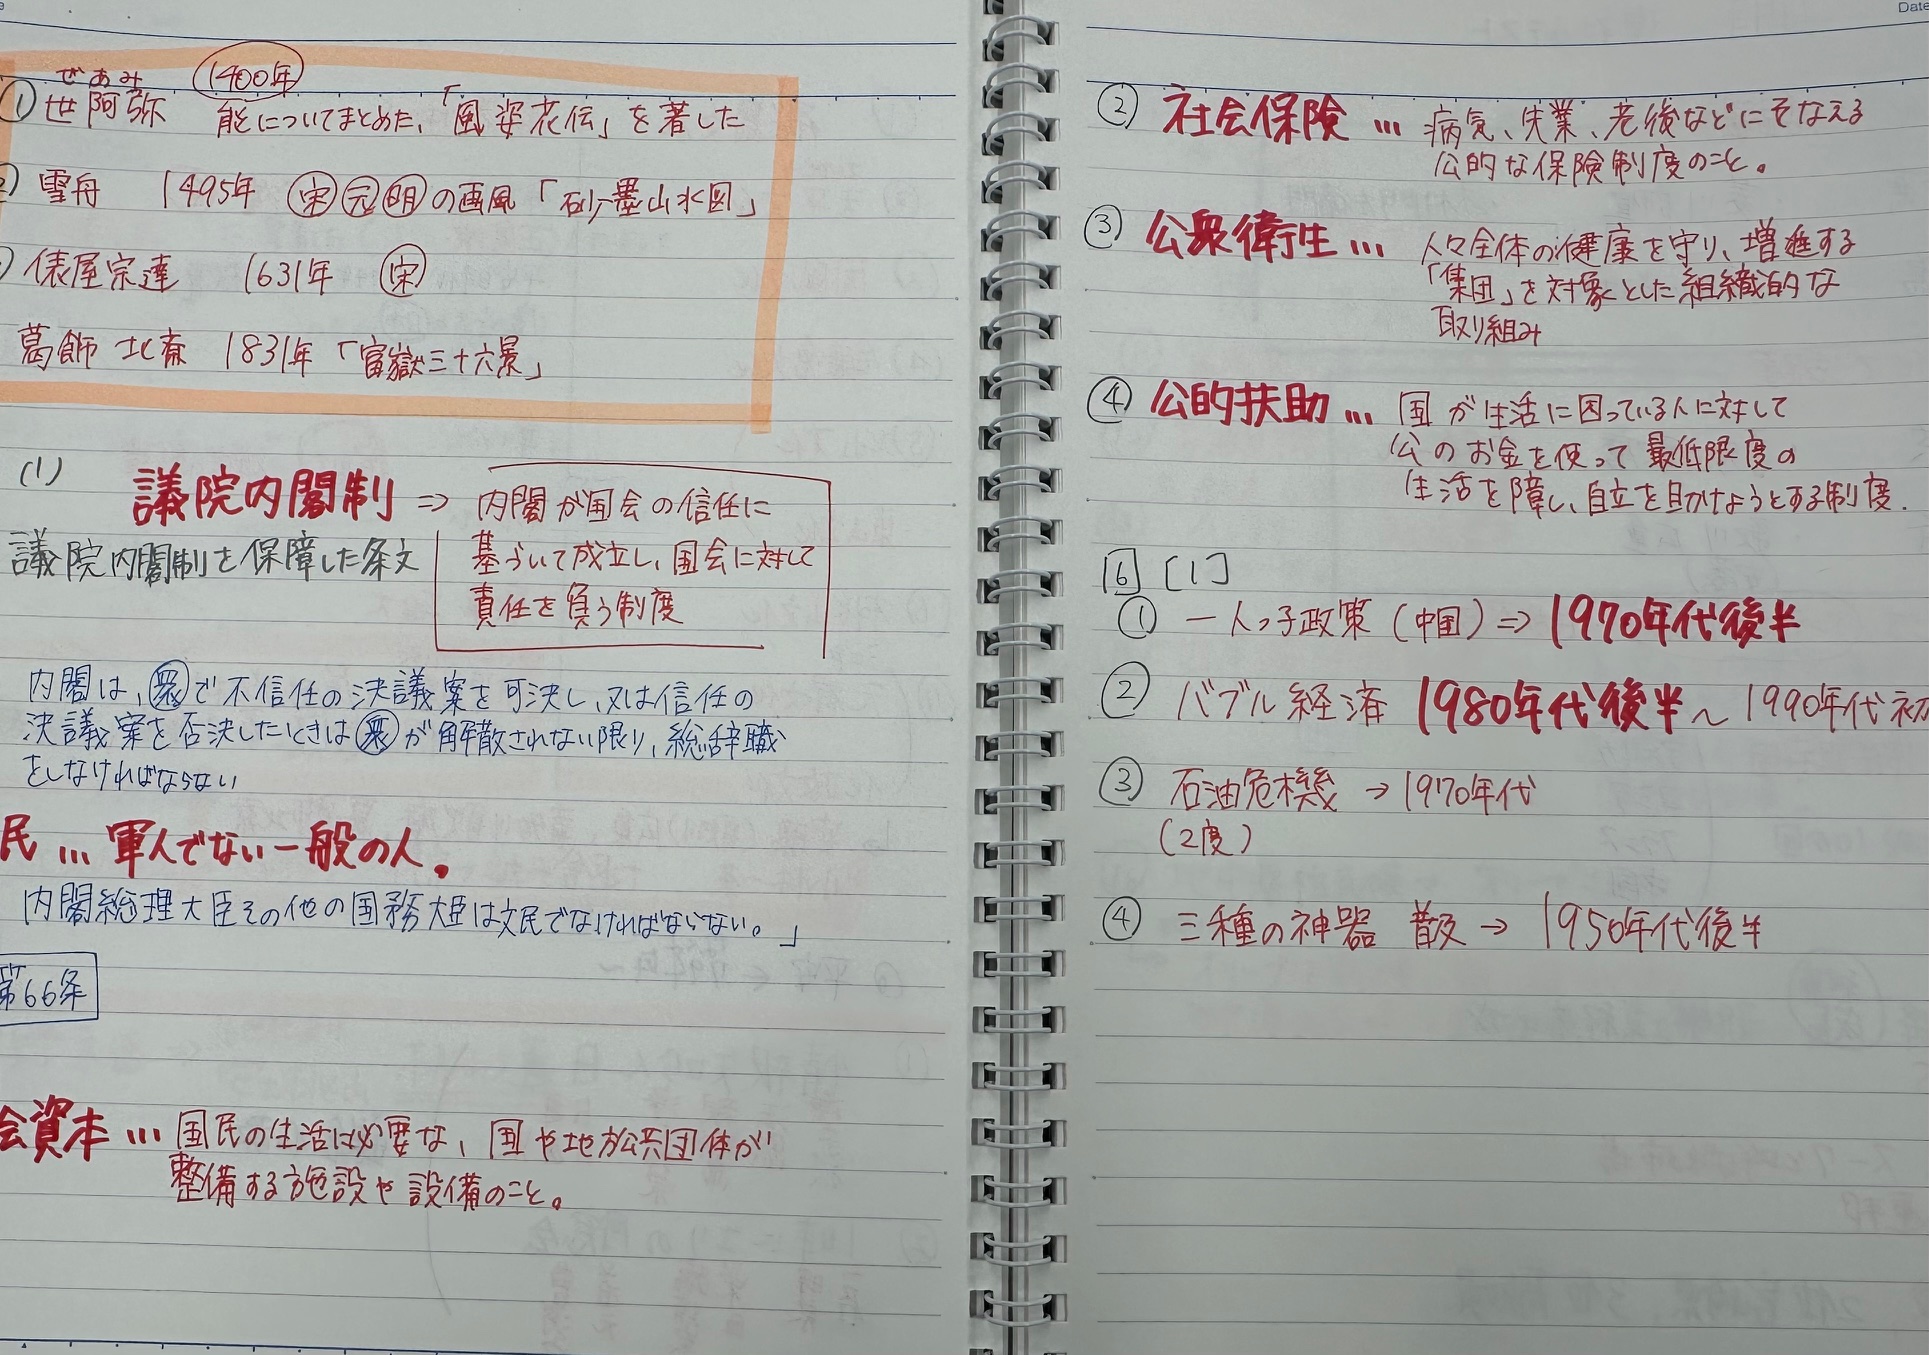 Date
ぜあみ
1400年
① 世阿弥 能についてまとめた、「風姿花伝」を著した
雪舟 1495年 宋 元 明 の画風「破墨山水図」
俵屋宗達 1631年 宋
葛飾北斎 1831年「富嶽三十六景」
(1)
議院内閣制 ⇒ 内閣が国会の信任に
基づいて成立し、国会に対して
責任を負う制度
議院内閣制を保障した条文
内閣は、衆で不信任の決議案を可決し、又は信任の
決議案を否決したときは衆が解散されない限り、総辞職
をしなければならない
民 … 軍人でない一般の人。
内閣総理大臣その他の国務大臣は文民でなければならない。」
第66条
会資本 … 国民の生活に必要な、国や地方公共団体が
整備する施設や設備のこと。
② 社会保険 … 病気、失業、老後などにそなえる
公的な保険制度のこと。
③ 公衆衛生 … 人々全体の健康を守り、増進する
「集団」を対象とした組織的な
取り組み
④ 公的扶助 … 国が生活に困っている人に対して
公のお金を使って最低限度の
生活を障し、自立を助けようとする制度.
6 [1]
① 一人っ子政策(中国)⇒ 1970年代後半
② バブル経済 1980年代後半~1990年代初
③ 石油危機 → 1970年代
(2度)
④ 三種の神器 → 1950年代後半